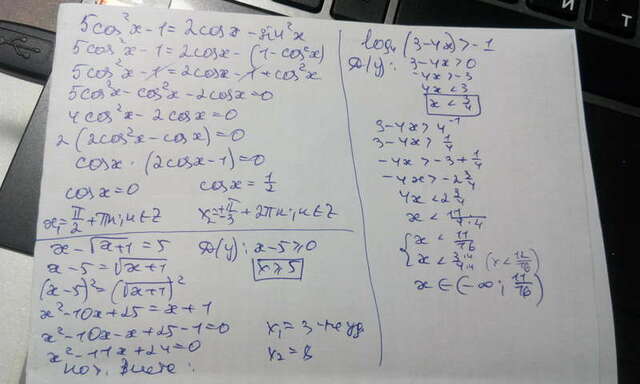 5cos²x-1=2cosx-sin²x
5cos²x-1=2cosx-(1-cos²x)
5cos²x-1=2cosx-1+cos²x
5cos²x-cos²x-2cosx=0
4cos²x-2cosx=0
2(2cos²x-cosx)=0
cosx·(2cosx-1)=0
cosx=0 cosx=1/2
x₁=π/2+πn; n∈Z x₂=±π/3+2πn; n∈Z
x-√x+1=5 Д(у): x-5≥0
x-5=√x+1 x≥5
(x-5)²=(√x+1)²
x²-10x+25=x+1
x²-10x-x+25-1=0 x₁=3-не уд
x²-11x+24=0 x₂=8
по т. Виета:
log₄(3-4x)>-1
Д(у): 3-4x>0
-4x>-3
4x<3
x<3/4
3-4x>4⁻¹
3-4x>1/4
-4x>-3+1/4
-4x>-2 3/4
4x<2 3/4
x<11/4·4
{x<11/16
{x<3·4/4·4 (x<12/16)
x∈(-∞; 11/16)